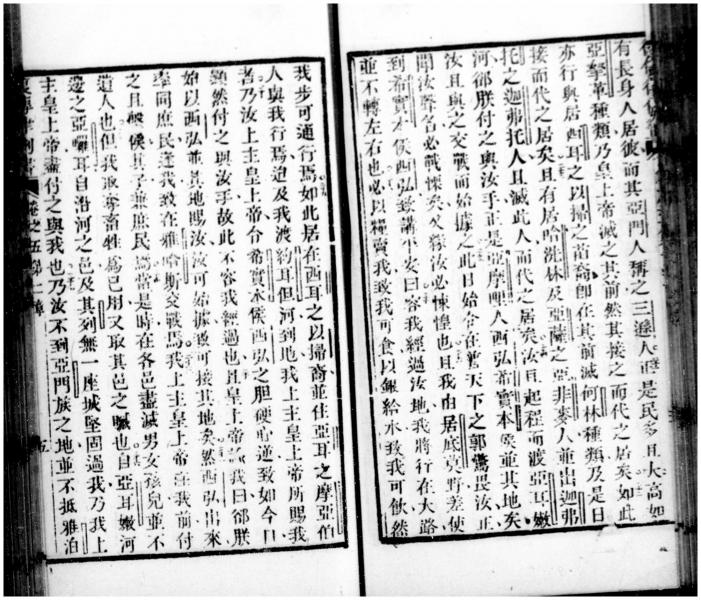 有長身人居彼而其亞門人稱之三遜人䟽是民多且大高如
亞拏革種類乃皇上帝滅之其前然其接之而代之居矣如此
亦行與居西耳之以掃之苗裔卽在其前滅何林種類乃是日
接而代之居矣且有居哈洗林及亞薩之亞非麥人並出迦弗
托之迦弗托人且滅此人而代之居矣汝且起程而渡亞耳嫩
河卻朕付之與汝手正是亞摩哩人西弘希實本侯並其地矣
汝且與之交戰而始據之此日始令在普天下之郭驚畏汝正
聞汝聲名必戰慄矣又緣汝必悚惶也且我由居底莫野差使
到希實本侯西弘致講平安曰容我經過汝地我將行在大路
並不轉左右也必以糧賣我致我可食以銀給水致我可飲然
我步可通行焉如此居在西耳之以掃裔並住亞耳之摩亞伯
人與我行焉迨及我渡約耳但河到地我上主皇上帝所賜我
者乃汝上主皇上帝令希實本侯西弘之胆硬心逆致如今日
顯然付之與汝手故此不容我經過也且皇上帝諭我曰卻朕
始以西弘並其地賜汝汝可始據致可接其地矣然西弘出來
率同庶民逢我致在雅哈斯交戰焉我上主皇上帝在我前付
之且殺侯其子兼庶民焉當是時在各邑盡滅男女孩兒並不
遺人也但我取奪畜牲爲己用又取其邑之贓也自亞耳嫩河
邊之亞囉耳自沿河之邑及其列無一座城堅固過我乃我上
主皇上帝盡付之與我也乃汝不到亞門族之地並不抵雅泊
卷之五第二章
五